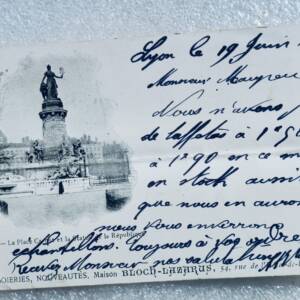 Lyon le 19 Juin
Monsieur
Nous n'avons
de taffetas à 1.95
à 1.90 en ce
en stock aussi
que nous en aurons
nous vous enverrons
échantillons. Toujours à vos
Recevez Monsieur nos
— La Place Carnot et la Statue de la République
SOIERIES, NOUVEAUTÉS, Maison BLOCH-LAZARUS, 54, rue de